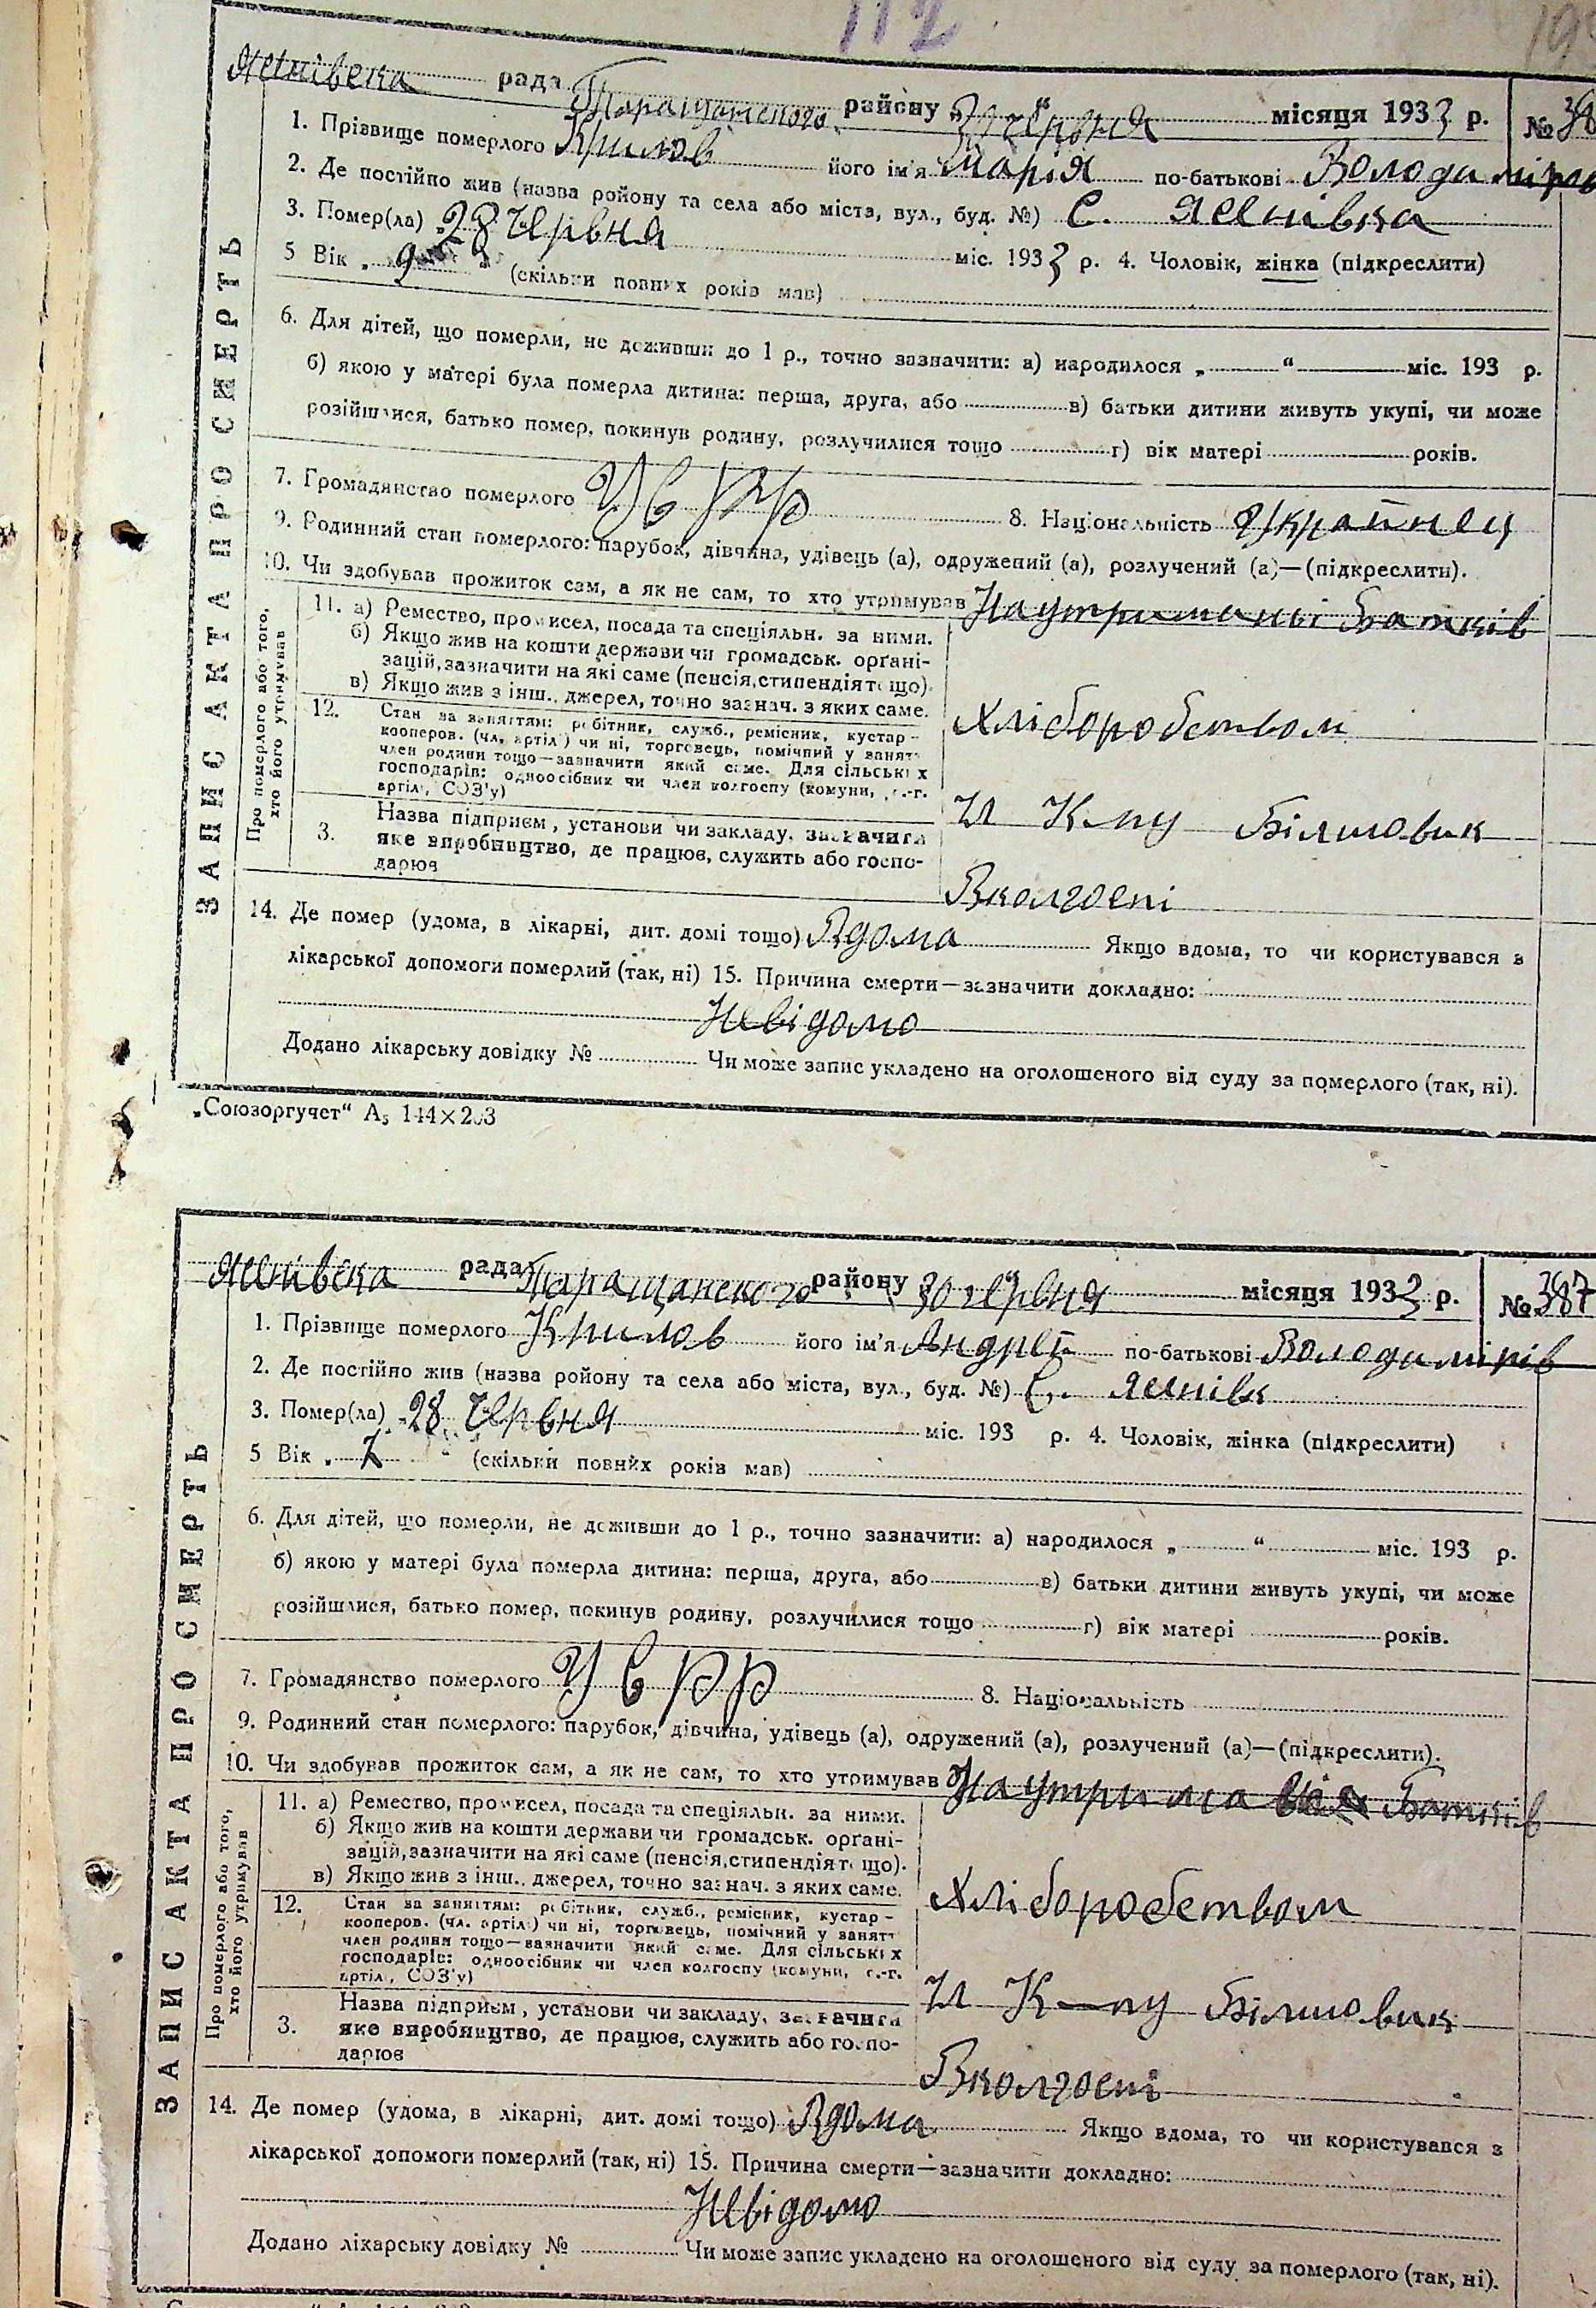 112
Яснівска рада Таращанского району 30 червня місяця 1933 р. №
1. Прізвище померлого Крилов його ім'я Марія по-батькові Володимірів
2. Де постійно жив (назва ройону та села або міста, вул., буд. №) С. Яснівка
3. Помер(ла) 28 Червня міс. 1933 р. 4. Чоловік, жінка (підкреслити)
5 Вік 9 (скільки повних років мав)
6. Для дітей, що померли, не доживши до 1 р., точно зазначити: а) народилося „ “ міс. 193 р.
б) якою у матері була померла дитина: перша, друга, або в) батьки дитини живуть укупі, чи може
розійшлися, батько помер, покинув родину, розлучилися тощо г) вік матері років.
7. Громадянство померлого УСРР 8. Національність Українец
9. Родинний стан померлого: парубок, дівчина, удівець (а), одружений (а), розлучений (а)—(підкреслити).
10. Чи здобував прожиток сам, а як не сам, то хто утримував На утриманьі Батьків
11. а) Ремество, промисел, посада та спеціяльн. за ними.
б) Якщо жив на кошти держави чи громадськ. орґані-
зацій, зазначити на які саме (пенсія, стипендія тощо).
в) Якщо жив з інш., джерел, точно зазнач. з яких саме.
Хліборобством
12. Стан за заняттям: робітник, служб., ремісник, кустар-
кооперов. (чл. артілі) чи ні, торговець, помічний у занятт
член родини тощо—зазначити який саме. Для сільських
господарів: одноосібник чи член колгоспу (комуни, с.-г.
артілі, СОЗ'у)
Чл К-пу Більшовик
3. Назва підприєм, установи чи закладу, зазначити
яке виробництво, де працює, служить або госпо-
дарює
Вколгоспі
14. Де помер (удома, в лікарні, дит. домі тощо) Вдома Якщо вдома, то чи користувався з
лікарської допомоги померлий (так, ні) 15. Причина смерти—зазначити докладно:
Невідомо
Додано лікарську довідку № Чи може запис укладено на оголошеного від суду за померлого (так, ні).
ЗАПИС АКТА ПРО СМЕРТЬ
Про померлого або того,
хто його утримував
„Союзоргучет“ А5 144×203
Яснівска рада Таращанского району 30 червня місяця 1933 р. № 387
1. Прізвище померлого Крилов його ім'я Андрей по-батькові Володимірів
2. Де постійно жив (назва ройону та села або міста, вул., буд. №) С. Яснівк
3. Помер(ла) 28 Червня міс. 193 р. 4. Чоловік, жінка (підкреслити)
5 Вік 7 (скільки повних років мав)
6. Для дітей, що померли, не доживши до 1 р., точно зазначити: а) народилося „ “ міс. 193 р.
б) якою у матері була померла дитина: перша, друга, або в) батьки дитини живуть укупі, чи може
розійшлися, батько помер, покинув родину, розлучилися тощо г) вік матері років.
7. Громадянство померлого УСРР 8. Національність
9. Родинний стан померлого: парубок, дівчина, удівець (а), одружений (а), розлучений (а)—(підкреслити).
10. Чи здобував прожиток сам, а як не сам, то хто утримував Батьків
11. а) Ремество, промисел, посада та спеціяльн. за ними.
б) Якщо жив на кошти держави чи громадськ. орґані-
зацій, зазначити на які саме (пенсія, стипендія тощо).
в) Якщо жив з інш., джерел, точно зазнач. з яких саме.
Хліборобством
12. Стан за заняттям: робітник, служб., ремісник, кустар-
кооперов. (чл. артілі) чи ні, торговець, помічний у занятт
член родини тощо—зазначити який саме. Для сільських
господарів: одноосібник чи член колгоспу (комуни, с.-г.
артілі, СОЗ'у)
Чл К-пу Більшовик
3. Назва підприєм, установи чи закладу, зазначити
яке виробництво, де працює, служить або госпо-
дарює
Вколгоспі
14. Де помер (удома, в лікарні, дит. домі тощо) Вдома Якщо вдома, то чи користувався з
лікарської допомоги померлий (так, ні) 15. Причина смерти—зазначити докладно:
Невідомо
Додано лікарську довідку № Чи може запис укладено на оголошеного від суду за померлого (так, ні).
ЗАПИС АКТА ПРО СМЕРТЬ
Про померлого або того,
хто його утримував